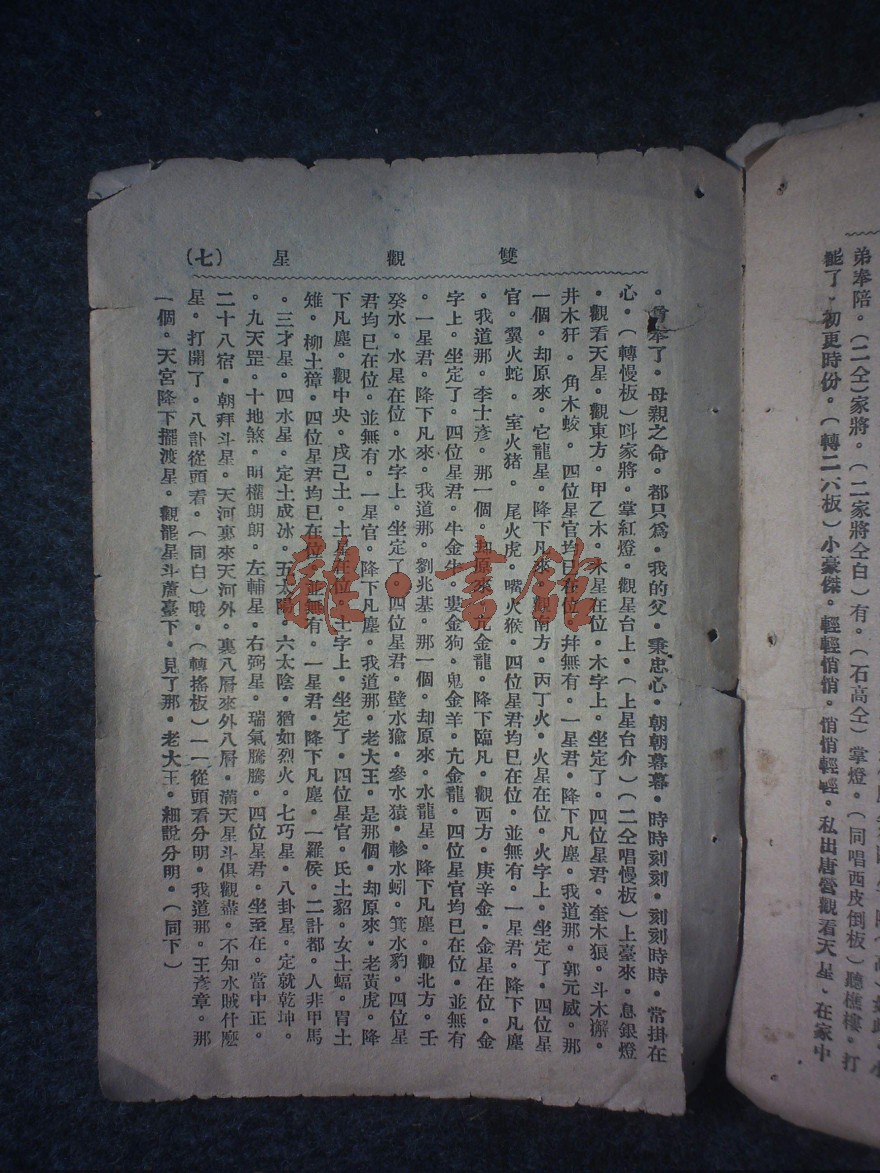 弟奉陪。(二仝)家將。(二家將仝白)有。(石高仝)掌燈。(同唱西皮倒板)聽樵樓。打
罷了。初更時份。(轉二六板)小豪傑。輕輕悄悄。悄悄輕輕。私出唐營觀看天星。在家中
雙觀星 (七)
奉了。母親之命。都只為。我的父。秉忠心。朝朝幕幕。時時刻刻。刻刻時時。常掛在
心。(轉慢板)呌家將。掌紅燈。觀星台上。(上星台介)(二仝唱慢板)上臺來。息銀燈
。觀看天星。觀東方。甲乙木。木星在位。木字上。坐定了。四位星君。奎木狼。斗木獬。
井木犴。角木蛟。四位星官均已在位。幷無有。一星君。降下凡塵。我道那。郭元威。那
一個。却原來。它龍星。降下凡來。觀南方。丙丁火。火星在位。火字上。坐定了。四位星
官。翼火蛇。室火猪。尾火虎。嘴火猴。四位星君均已在位。並無有。一星君。降下凡塵
。我道那。李士彥。那一個。却原來。亢金龍。降下臨凡。觀西方。庚辛金。金星在位。金
字上。坐定了。四位星君。牛金牛。婁金狗。鬼金羊。亢金龍。四位星官均已在位。並無有
。一星君。降下凡來。我道那。劉兆基。那一個。却原來。水龍星。降下凡塵。觀北方。壬
癸水。水星在位。水字上。坐定了。四位星君。壁水㺄。參水猿。軫水蚓。箕水豹。四位星
君均已在位。並無有。一星官。降下凡塵。我道那。老大王。是那個。却原來。老黃虎。降
下凡塵。觀中央。戊己土。土星在位。土字上。坐定了。四位星官。氐土貂。女土蝠。胃土
雉。柳土獐。四位星君均已在位。並無有。一星君。降下凡塵。一羅侯。二計都。人非甲馬
。三才星。四水星。定土成冰。五太陽。六太陰。猶如烈火。七巧星。八卦星。定就乾坤。
。九天罡。十地煞。明權朗朗。左輔星。右弼星。瑞氣騰騰。四位星君。坐至在。當中正。
二十八宿。朝拜斗星。天河裏來天河外。裏八層來外八層。滿天星斗俱觀盡。不知水賊什麼
星。打開了。八卦從頭看。(同白)哦。(轉搖板)一一從頭看分明。我道那。王彥章。那
一個。天宮降下擺渡星。觀罷星斗蘆臺下。見了那。老大王。細說分明。(同下)
雜·書館